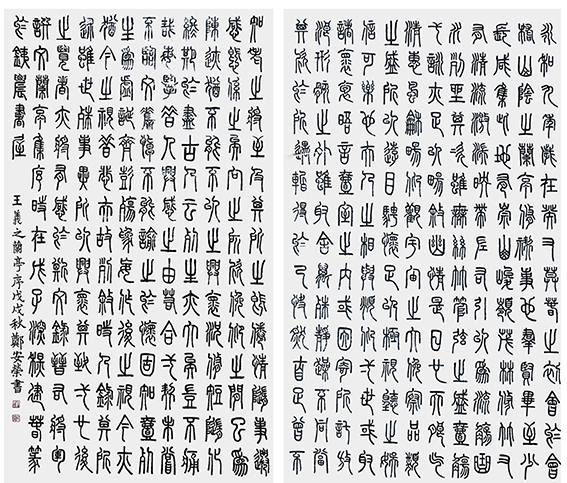 永和九年歲在癸丑莫春之初會于會
稽山陰之蘭亭脩禊事也羣賢畢至少
長咸集此地有崇山峻領茂林脩竹又
有清流激湍映帶左右引以為流觴曲
水列坐其次雖無絲竹管弦之盛一觴
一詠亦足以暢敘幽情是日也天朗氣
清惠風和暢仰觀宇宙之大俯察品類
之盛所以遊目騁懷足以極視聽之娛
信可樂也夫人之相與俯仰一世或取
諸懷抱晤言壹室之內或因寄所託放
浪形骸之外雖取舍萬殊靜躁不同當
其欣於所遇暫得於己快然自足曾不
知老之將至及其所之既倦情隨事遷
感慨係之矣向之所欣俛仰之間以為
陳迹猶不能不以之興懷況脩短隨化
終期於盡古人云死生亦大矣豈不痛
哉每攬昔人興感之由若合一契未嘗
不臨文嗟悼不能喻之於懷固知壹死
生為虛誕齊彭殤為妄作後之視今亦
猶今之視昔悲夫故列敘時人錄其所
述雖世殊事異所以興懷其致一也後
之覽者亦將有感於斯文錄晉右將軍
文蘭亭集序時在戊子深秋建春篆
於錢農書屋
王羲之蘭亭序戊戌秋鄭安榮書